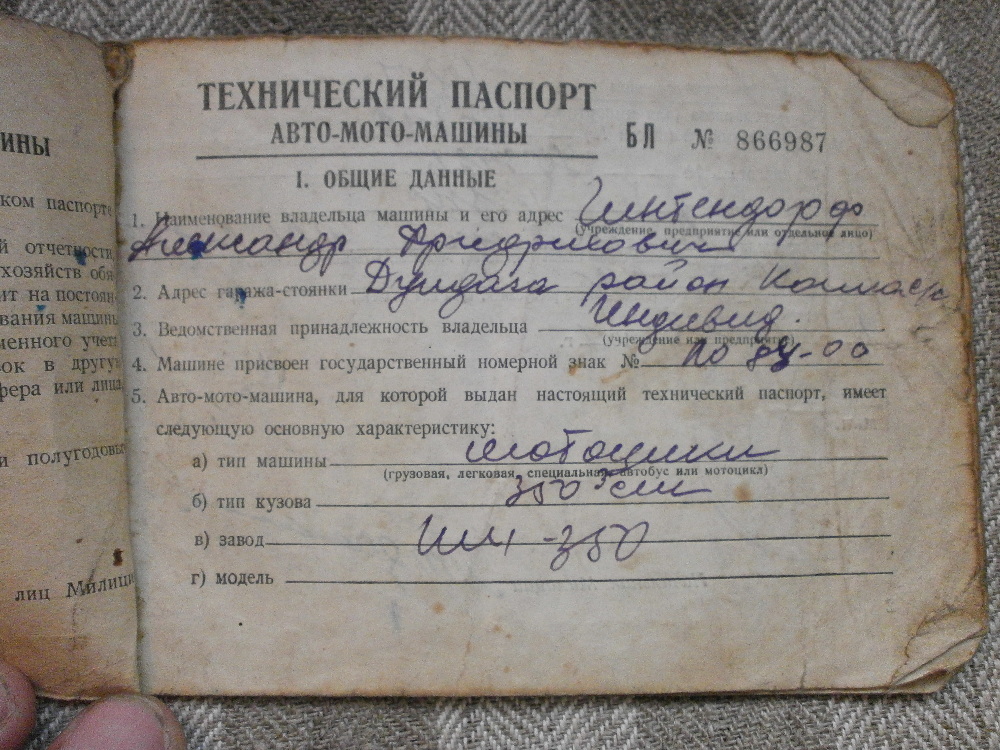 ИНЫ
ком паспорте
й отчетности
хозяйств обя
ит на постоян-
вания машины
менного учета
ок в другую
фера или лица
и полугодовые
лиц Милици
ТЕХНИЧЕСКИЙ ПАСПОРТ
АВТО-МОТО-МАШИНЫ
БЛ № 866987
I. ОБЩИЕ ДАННЫЕ
1. Наименование владельца машины и его адрес
(учреждение, предприятие или отдельное лицо)
Александр
2. Адрес гаража-стоянки район
3. Ведомственная принадлежность владельца Индивид.
(учреждение или предприятие)
4. Машине присвоен государственный номерной знак №
5. Авто-мото-машина, для которой выдан настоящий технический паспорт, имеет
следующую основную характеристику:
а) тип машины мотоцикл
(грузовая, легковая, специальная, автобус или мотоцикл)
б) тип кузова 350
в) завод -350
г) модель